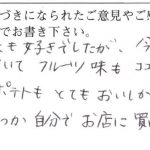 づきになられたご意見やご感
でお書き下さい。
も好きでしたが、今
いて フルーツ味も ココ
ポテトも とてもおいしか
つか自分でお店に買